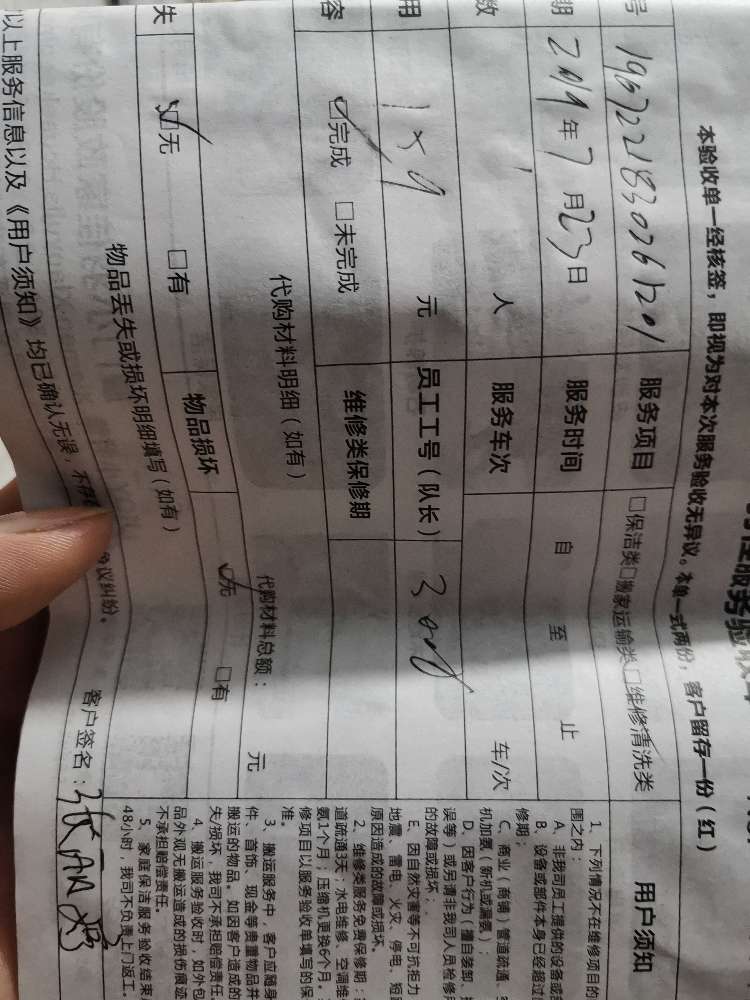 本验收单一经核签，即视为对本次服务验收无异议。本单一式两份，客户留存一份（红）
号
服务项目 □保洁类□搬家运输类□维修清洗类
期 2019年7月23日 服务时间 自 至 止
数 人 服务车次 车/次
用 元 员工工号（队长）
容 ☑完成 □未完成 维修类保修期
代购材料明细（如有） 代购材料总额： 元
失 ☑无 □有 物品损坏 ☑无 □有
物品丢失或损坏明细填写（如有）
以上服务信息以及《用户须知》均已确认无误，不存 议纠纷。
客户签名：
用户须知
1、下列情况不在维修项目的
围之内：
A、非我司员工提供的设备或
B、设备或部件本身已经超过
修期；
C、商业（商铺）管道疏通、
机加氨（新机或漏氨）；
D、因客户行为（擅自装卸、
误等）或另请非我司人员检修
的故障或损坏；
E、因自然灾害等不可抗拒力
地震、雷电、火灾、停电、短
原因造成的故障或损坏。
2、维修类服务免费保修期：
道疏通3天；水电维修、空调维
氨1个月；压缩机更换6个月。
修项目以服务验收单填写的保
准。
3、搬运服务中，客户应随身
件、首饰、现金等贵重物品并
搬运的物品。如因客户造成的
失/损坏，我司不承担赔偿责任
4、搬运服务验收时，如外包
品外观无搬运造成的损伤痕迹
不承担赔偿责任。
5、家庭保洁服务验收结束
48小时，我司不负责上门返工。